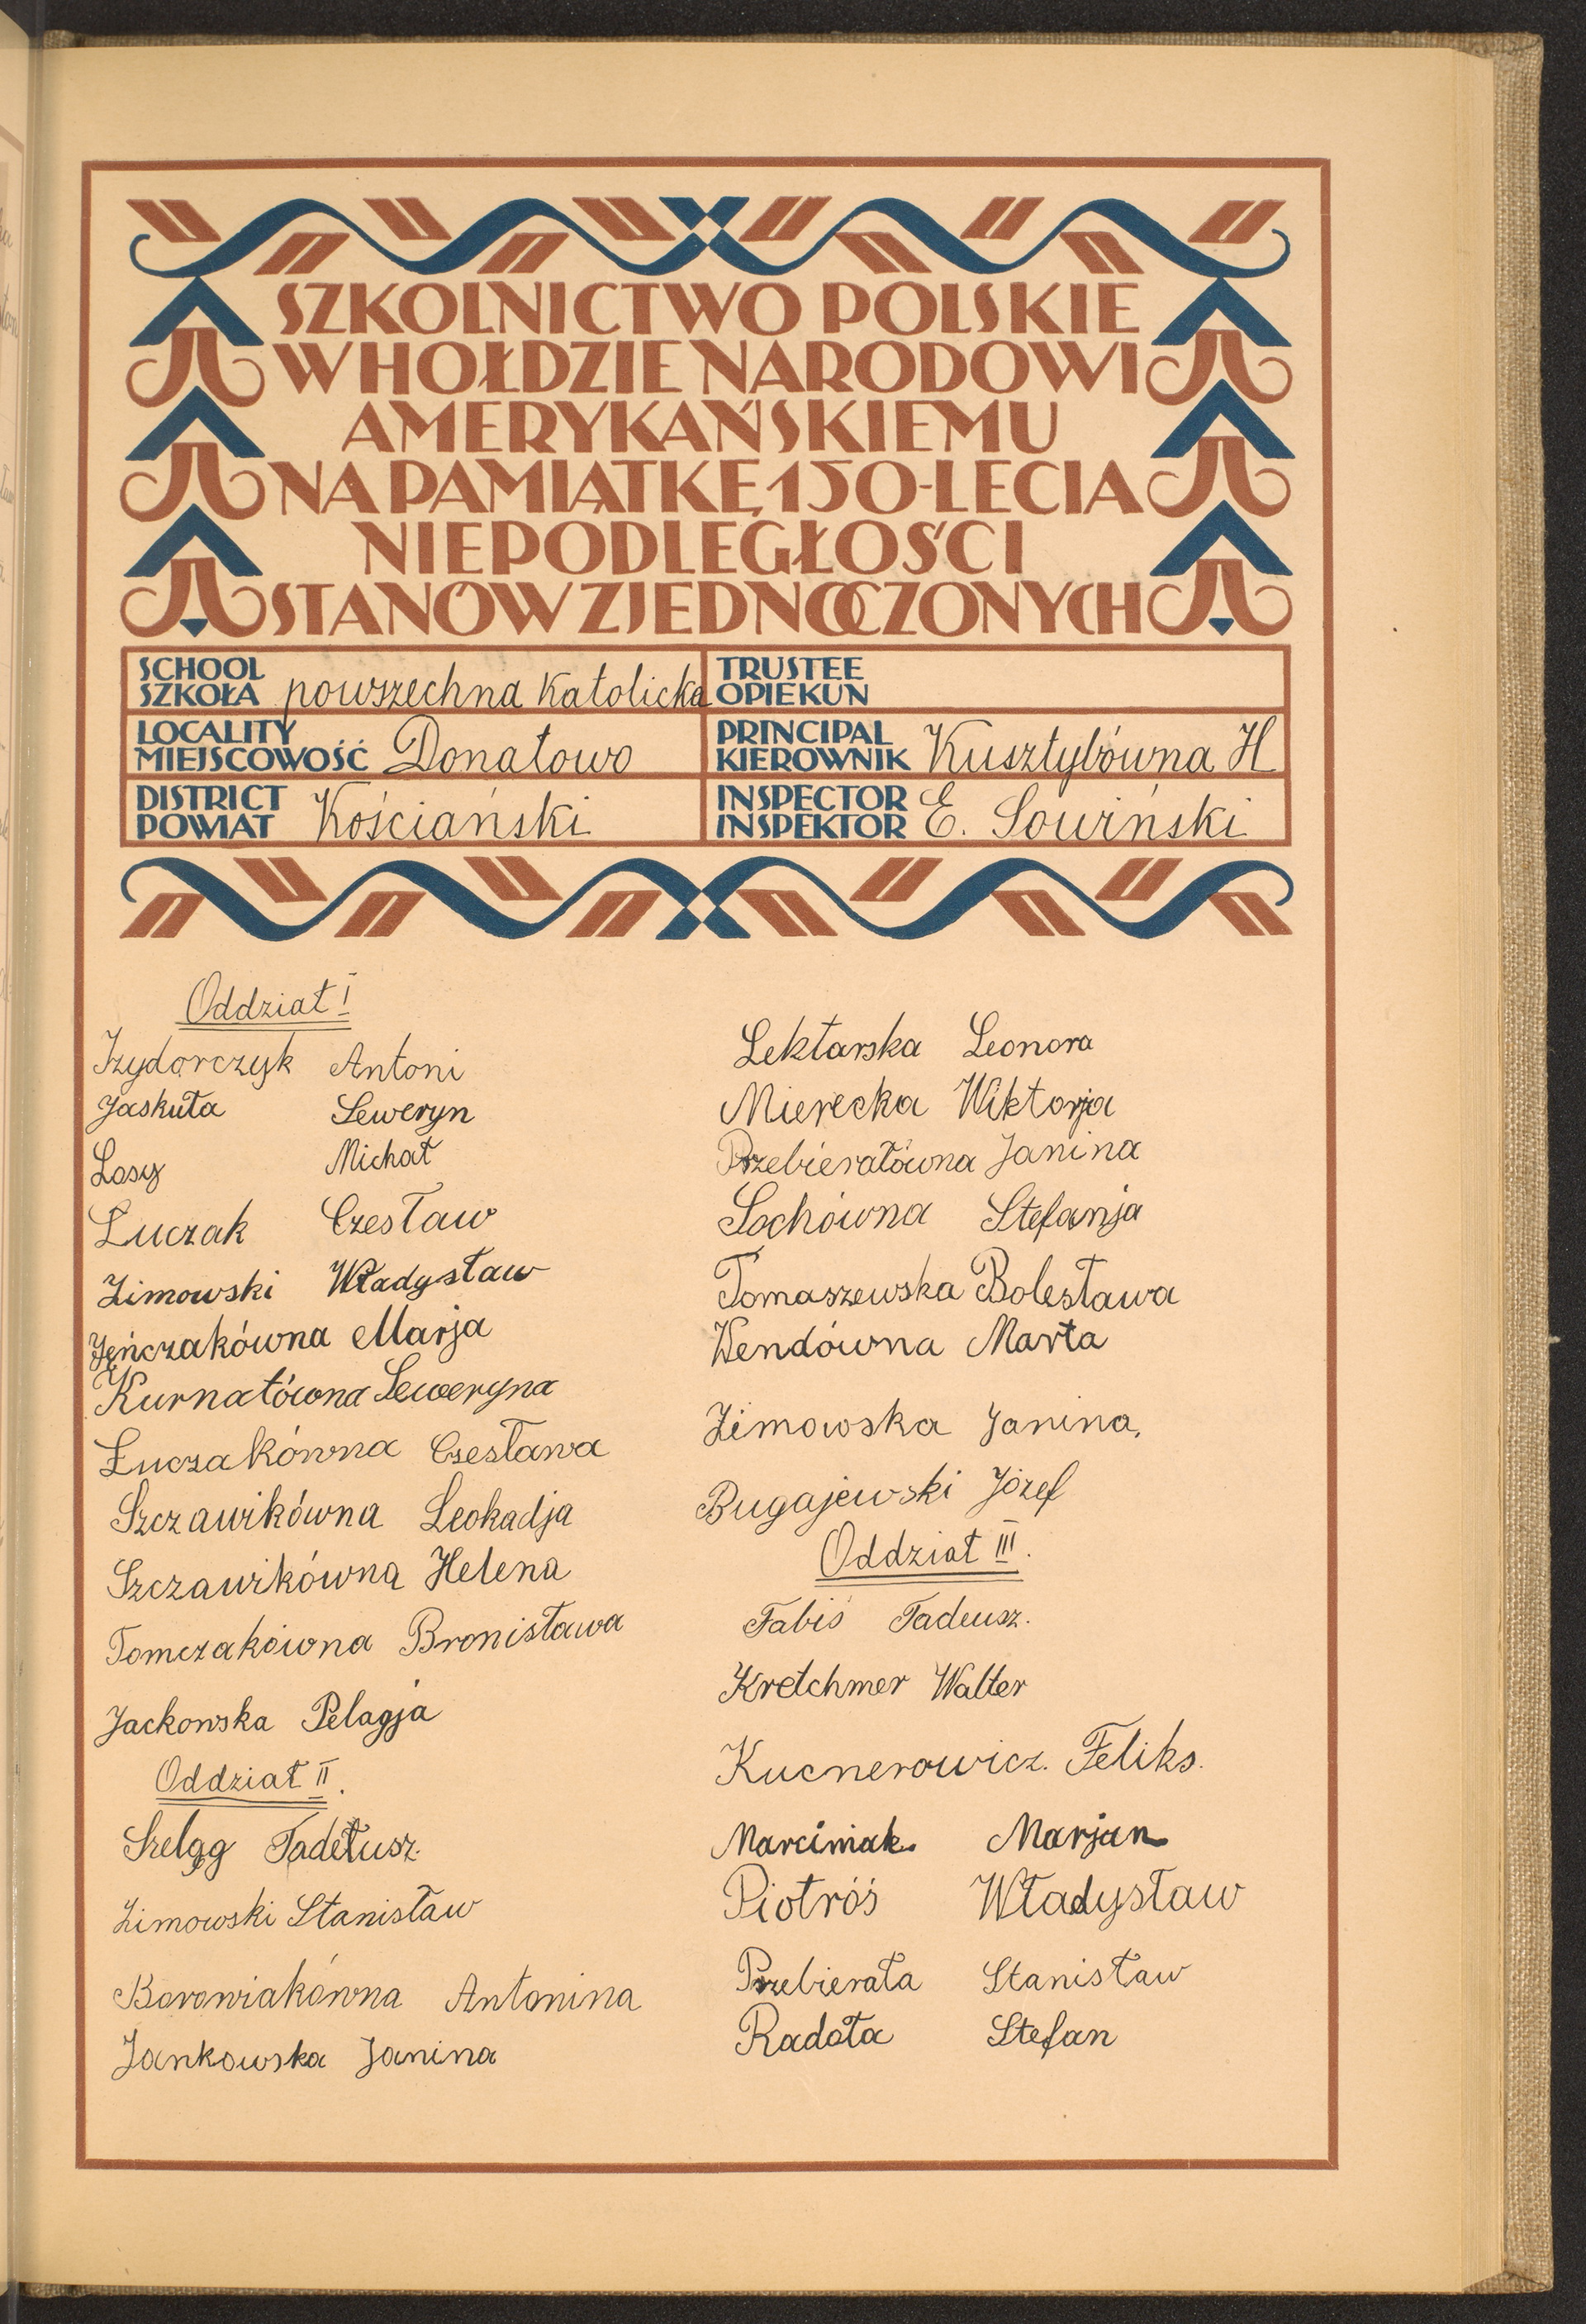 SZKOLNICTWO POLSKIE
W HOŁDZIE NARODOWI
AMERYKAŃSKIEMU
NA PAMIĄTKĘ 150-LECIA
NIEPODLEGŁOŚCI
STANÓW ZJEDNOCZONYCH
SCHOOL
SZKOŁA powszechna katolicka
TRUSTEE
OPIEKUN
LOCALITY
MIEJSCOWOŚĆ Donatowo
PRINCIPAL
KIEROWNIK Kusztybówna H
DISTRICT
POWIAT Kościański
INSPECTOR
INSPEKTOR E. Sowiński
Oddział I
Izydorczyk Antoni
Jaskuła Seweryn
Losy Michał
Łuczak Czesław
Zimowski Władysław
Jęńczakówna Marja
Kurnatówna Seweryna
Łuczakówna Czesława
Szczawikówna Leokadja
Szczawikówna Helena
Tomczakówna Bronisława
Jackowska Pelagja
Oddział II.
Szeląg Tadeusz.
Zimowski Stanisław
Borowiakówna Antonina
Jankowska Janina
Lektarska Leonora
Mierecka Wiktorja
Przebierałówna Janina
Sochówna Stefanja
Tomaszewska Bolesława
Wendówna Marta
Zimowska Janina.
Bugajewski Józef
Oddział III.
Fabiś Tadeusz.
Kretchmer Walter
Kucnerowicz. Feliks.
Marciniak. Marjan
Piotróś Władysław
Przebierała Stanisław
Radoła Stefan